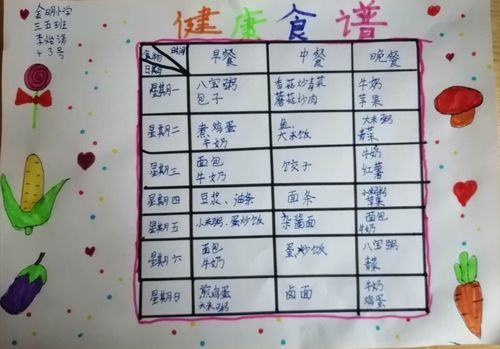 金明小学
三五班
李怡诺
43号
健康食谱
食物 时间 日期 早餐 中餐 晚餐
星期一 八宝粥 包子 香菇炒青菜 蘑菇炒肉 牛奶 苹果
星期二 煮鸡蛋 牛奶 鱼 大米饭 大米粥 青菜
星期三 面包 牛奶 饺子 牛奶 红薯
星期四 豆浆、油条 面条 小米粥 苹果
星期五 小米粥、蛋炒饭 杂酱面 面包 牛奶
星期六 面包 牛奶 蛋炒饭 八宝粥 青菜
星期日 煎鸡蛋 大米粥 卤面 牛奶 鸡蛋